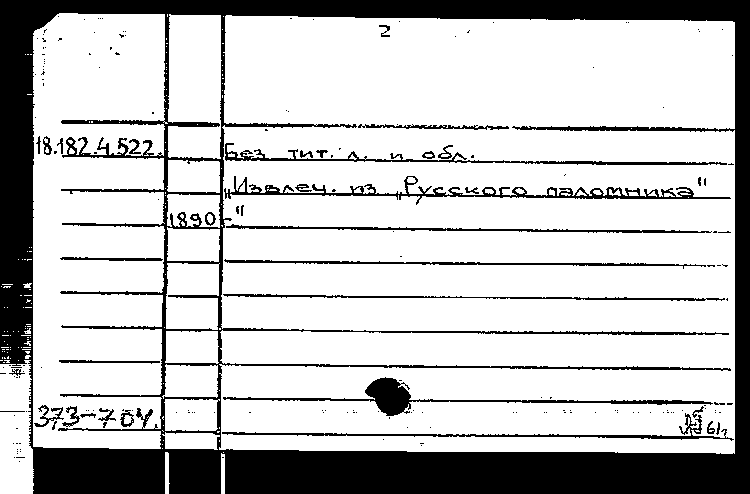 2
18.182.4.522. Без тит. л. и обл.
„Извлеч. из „Русского паломника"
1890-"
373-704.
61г